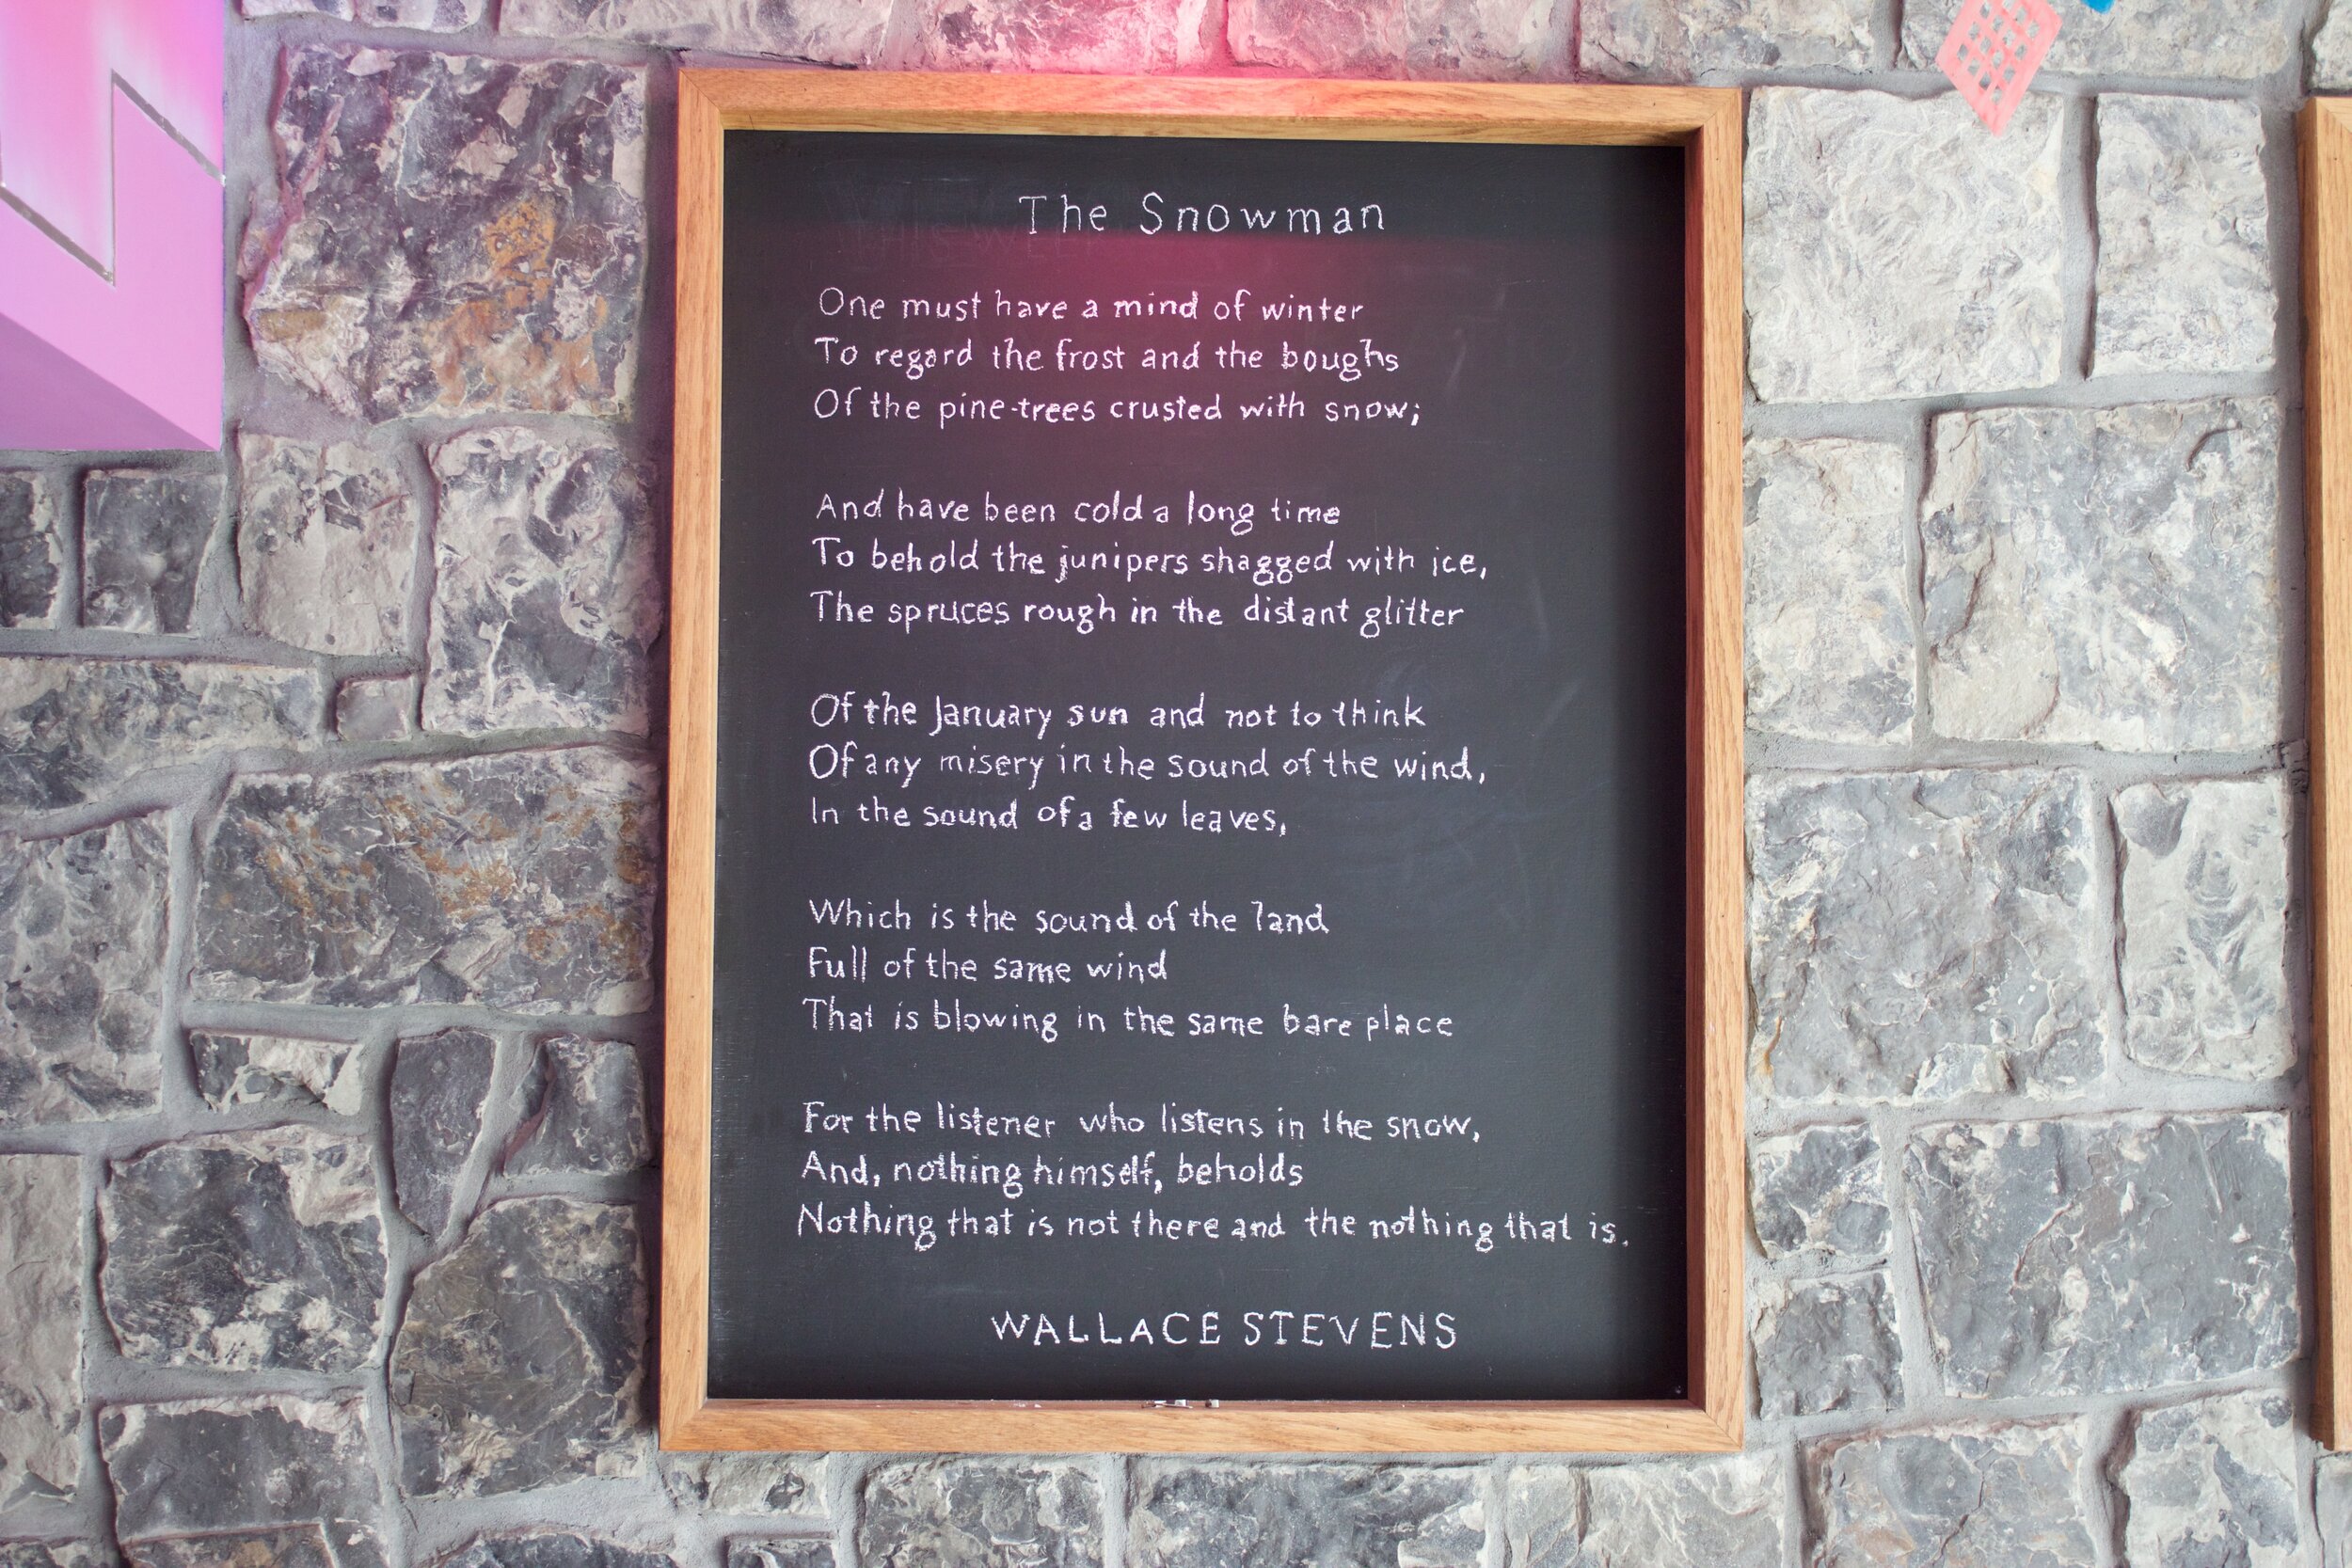 The Snowman
One must have a mind of winter
To regard the frost and the boughs
Of the pine-trees crusted with snow;
And have been cold a long time
To behold the junipers shagged with ice,
The spruces rough in the distant glitter
Of the January sun and not to think
Of any misery in the sound of the wind,
In the sound of a few leaves,
Which is the sound of the land
Full of the same wind
That is blowing in the same bare place
For the listener who listens in the snow,
And, nothing himself, beholds
Nothing that is not there and the nothing that is.
WALLACE STEVENS